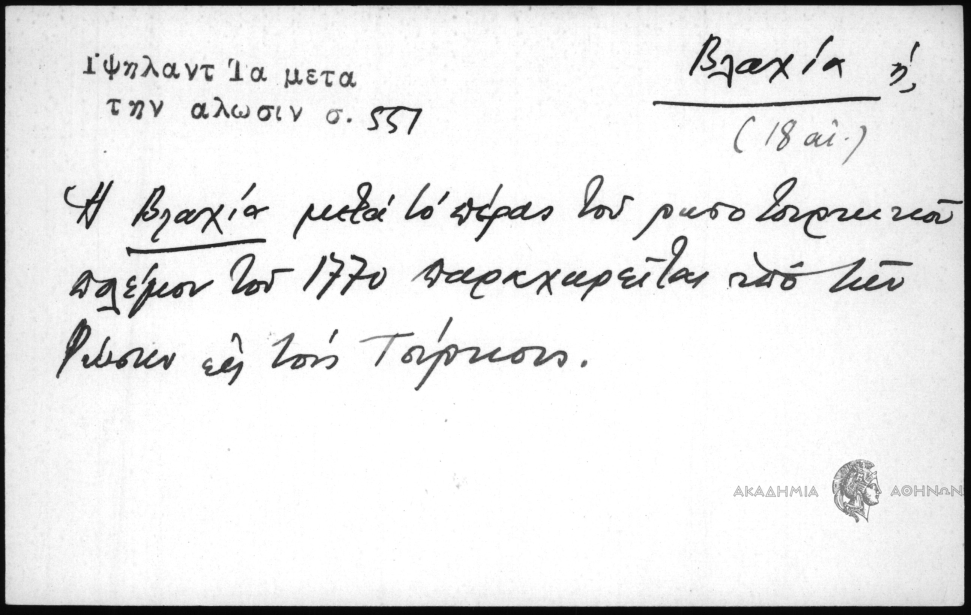 Ὑψηλαντ Τα μετα
την αλωσιν σ. 551
Βλαχία ἡ,
(18 αἰ.)
Ἡ Βλαχία μετά τό πέρας τοῦ ρωσοτουρκικοῦ
πολέμου τοῦ 1770 παραχωρεῖται ὑπό τῶν
Ρώσων εἰς τούς Τούρκους.
ΑΚΑΔΗΜΙΑ ΑΘΗΝΩΝ